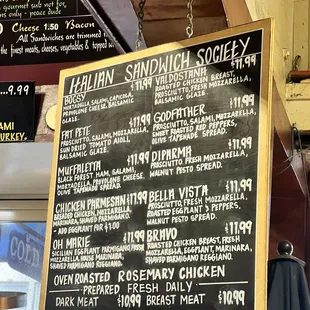 gourmet subs for
only - peace dude
Cheese 1.50 Bacon
All Sandwiches are trimmed
the finest meats, cheeses, vegetables & topped
..9.99
AMI
TURKEY.
COLD
ITALIAN SANDWICH SOCIETY
BUGSY $11.99
MORTADELLA, SALAMI, CAPICOLLA,
PROVOLONE CHEESE, BALSAMIC
GLAZE.
FAT PETE $11.99
PROSCIUTTO, SALAMI, MOZZARELLA,
SUN DRIED TOMATO AIOLI,
BALSAMIC GLAZE.
MUFFALETTA $11.99
BLACK FOREST HAM, SALAMI,
MORTADELLA, PROVOLONE CHEESE,
OLIVE TAPENADE SPREAD.
CHICKEN PARMESAN $11.99
BREADED CHICKEN, MOZZARELLA,
MARINARA, SHAVED PARMIGIANO.
+ ADD EGGPLANT FOR
OH MARIE $11.99
SICILIAN EGGPLANT PARMIGIANA,
MOZZARELLA, HOUSE MARINARA,
SHAVED PARMIGIANO REGGIANO.
VALDOSTANA $11.99
ROASTED CHICKEN BREAST,
PROSCIUTTO, FRESH MOZZARELLA,
BALSAMIC GLAZE.
GODFATHER $11.99
PROSCIUTTO, SALAMI, MOZZARELLA,
SWEET ROASTED RED PEPPERS,
OLIVE TAPENADE SPREAD.
DIPARMA $11.99
PROSCIUTTO, FRESH MOZZARELLA,
WALNUT PESTO SPREAD.
BELLA VISTA $11.99
PROSCIUTTO, FRESH MOZZARELLA,
ROASTED EGGPLANT & PEPPERS,
WALNUT PESTO SPREAD.
BRAVO $11.99
ROASTED CHICKEN BREAST, FRESH
MOZZARELLA, EGGPLANT, MARINARA,
SHAVED PARMIGIANO REGGIANO.
OVEN ROASTED ROSEMARY CHICKEN
- PREPARED FRESH DAILY -
DARK MEAT $10.99 BREAST MEAT $10.99